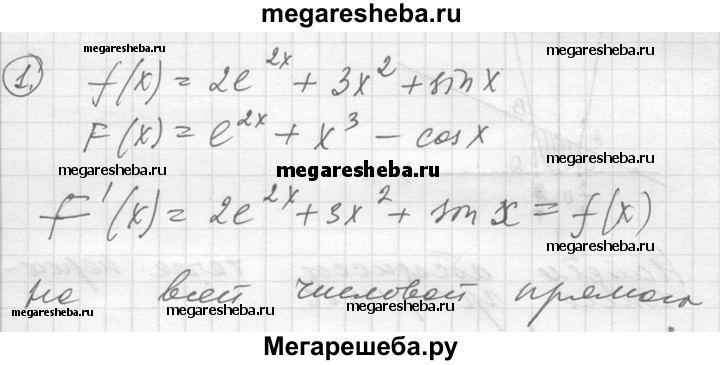 megaresheba.ru
megaresheba.ru
megaresheba.ru
1. f(x) = 2e^{2x} + 3x^2 + sin x
F(x) = e^{2x} + x^3 - cos x
megaresheba.ru
megaresheba.ru
megaresheba.ru
F'(x) = 2e^{2x} + 3x^2 + sin x = f(x)
megaresheba.ru
на всей числовой прямой
megaresheba.ru
megaresheba.ru
megaresheba.ru
Мегарешеба.ру